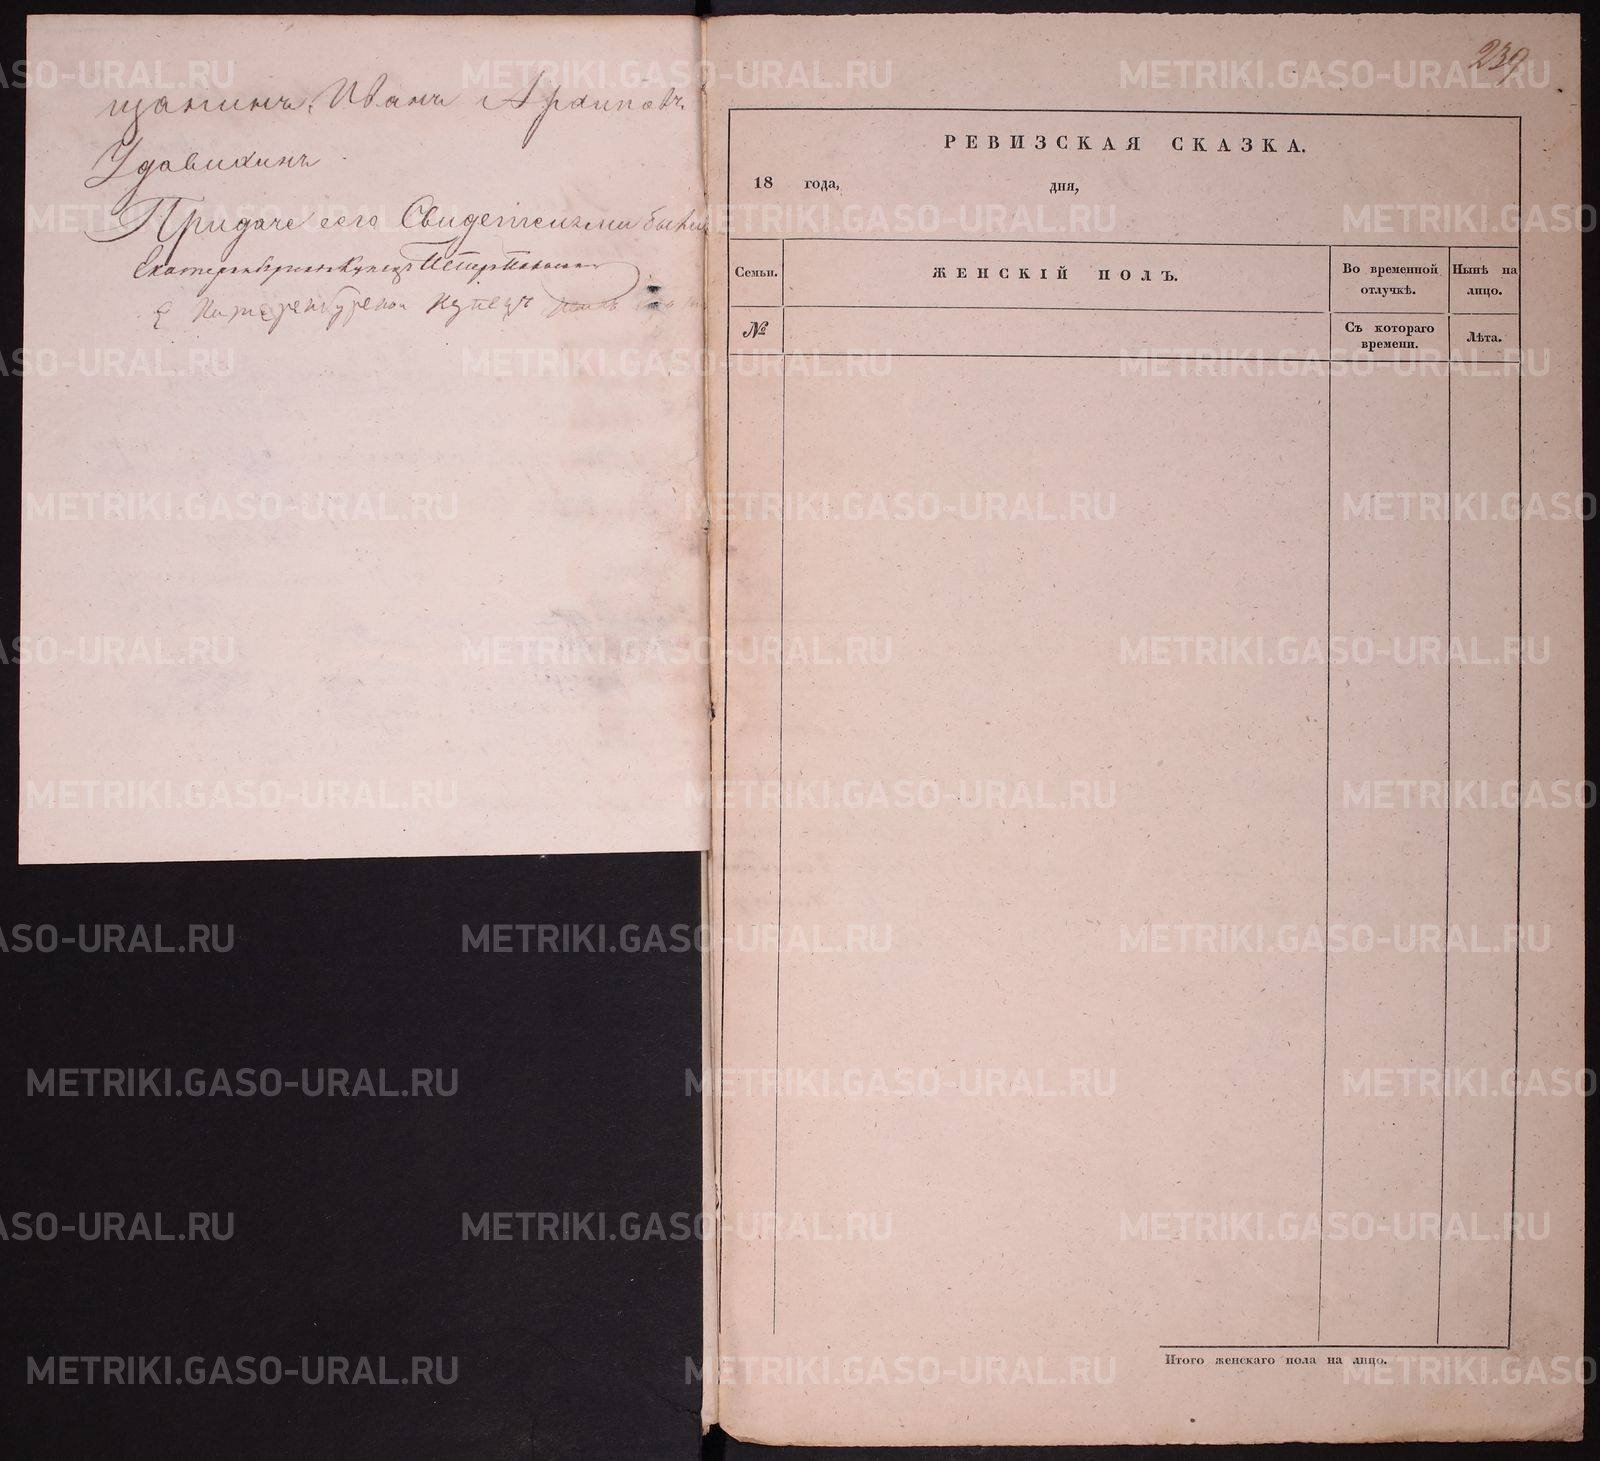 щанинъ, Иванъ Архиповъ
Удавихинъ
Придаче сего Свидетелями были
Екатеринбургскои Купецъ Петръ
Екатеренбурскои Купецъ
239
РЕВИЗСКАЯ СКАЗКА.
18 года, дня,
Семьи. ЖЕНСКІЙ ПОЛЪ. Во временной отлучкѣ. Нынѣ на лицо.
№ Съ котораго времени. Лѣта.
Итого женскаго пола на лицо.
METRIKI.GASO-URAL.RU